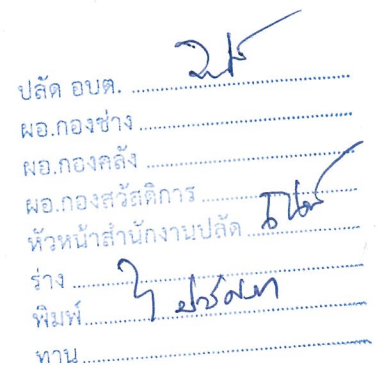 ปลัด อบต. ..............................
ผอ.กองช่าง ..............................
ผอ.กองคลัง ..............................
ผอ.กองสวัสดิการ ..............................
หัวหน้าสำนักงานปลัด ..............................
ร่าง ..............................
พิมพ์ ..............................
ทาน ..............................